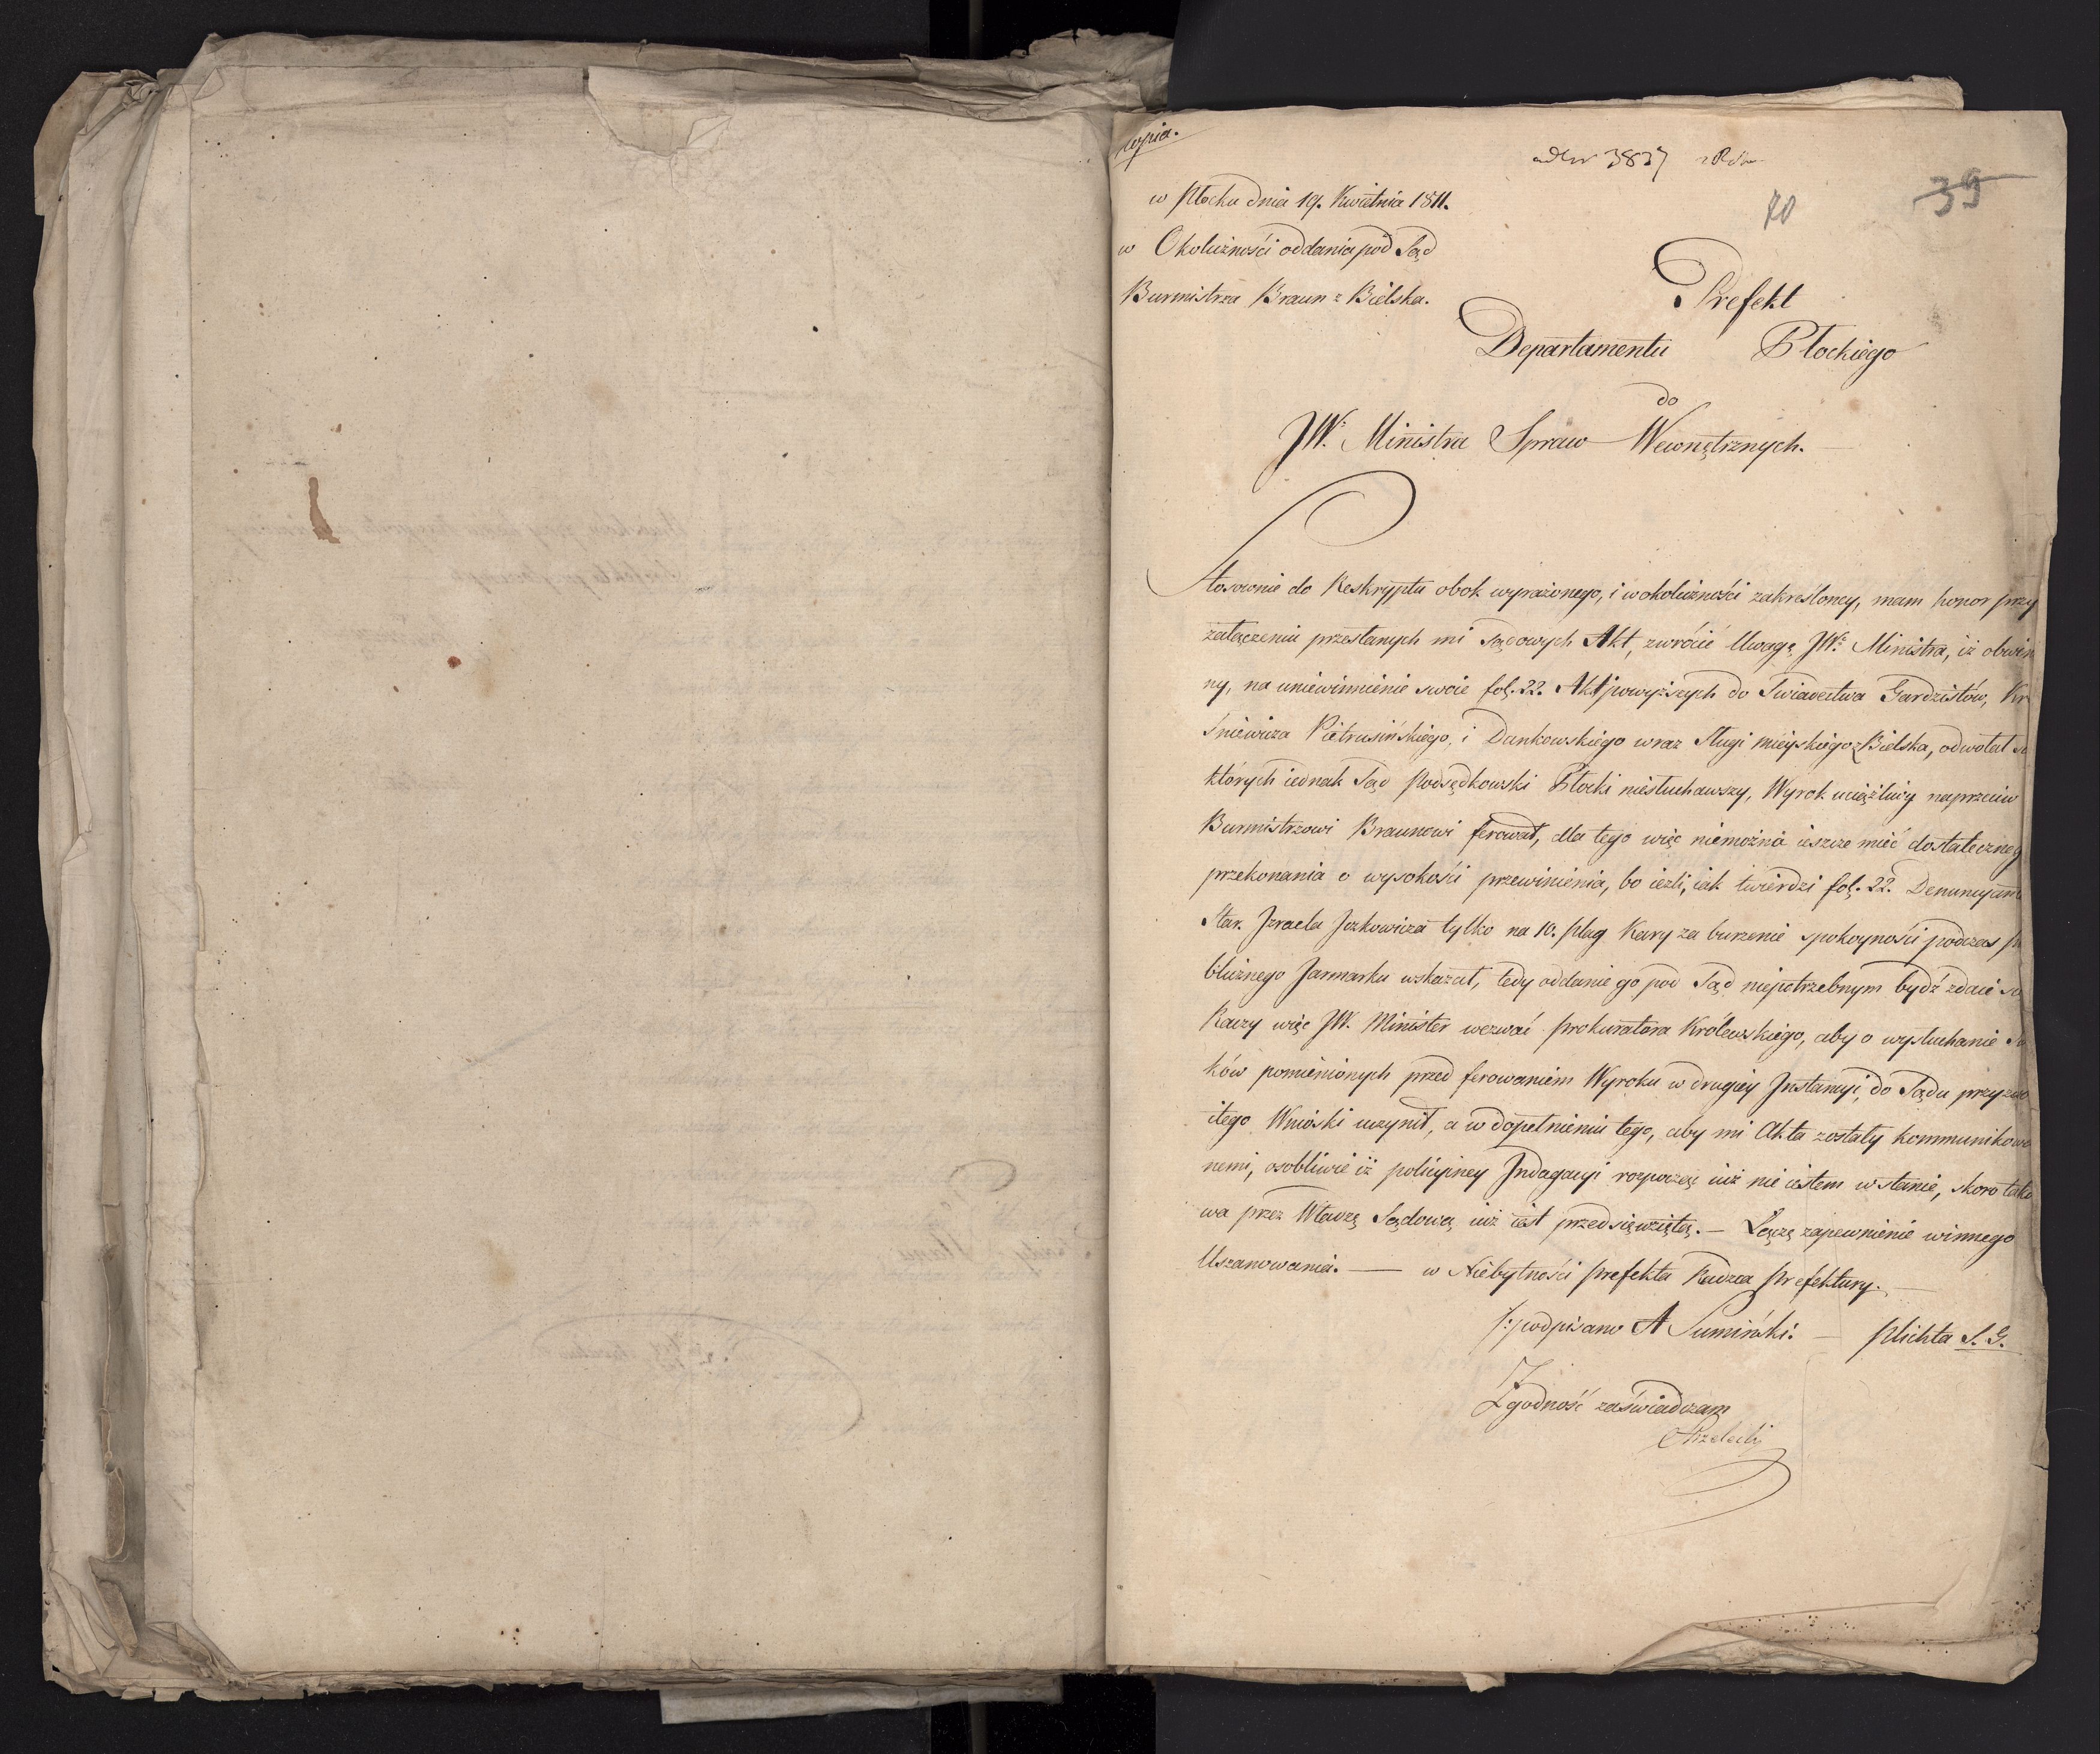 Copia.
ad Nr 3837
39
w Płocku dnia 19. Kwietnia 1811.
w Okoliczności oddania pod Sąd
Burmistrza Braun z Bielska.
Prefekt
Departamentu Płockiego
do
JW. Ministra Spraw Wewnętrznych.
Stosownie do Reskryptu obok wyrażonego, i w okoliczności zakreśloney, mam honor przy
załączeniu przesłanych mi Sądowych Akt, zwrócić Uwagę JW. Ministra, iż obwin
ny, na uniewinnienie swoie fol. 22. Akt powyższych do Swiadectwa Gardzistów, Kr
śniewicza Pietrusińskiego, i Dankowskiego wraz Sługi mieyskiego z Bielska, odwołał
których iednak Sąd Podsędkowski Płocki niesłuchawszy, Wyrok uciążliwy naprzeciw
Burmistrzowi Braunowi ferował, dla tego więc niemożna ieszcze mieć dostateczneg
przekonania o wysokości przewinienia, bo ieżli, iak twierdzi fol. 22. Denuncyan
Star. Izraela Jozkowicza tylko na 10. plag Kary za burzenie spokoyności podczas pu
blicznego Jarmarku wskazał, tedy oddanie go pod Sąd niepotrzebnym bydź zdaie
Raczy więc JW. Minister wezwać prokuratora Królewskiego, aby o wysłuchanie
ków pomienionych przed ferowaniem Wyroku w drugiéy Jnstancyi, do Sądu przyzwo
itego Wnioski uczynił, a w dopełnieniu tego, aby mi Akta zostały kommunikowa
nemi, osobliwie iż policyiney Jndagacyi rozpocząć iuż nie iestem w stanie, skoro tako
wa przez Władzę Sądową iuż iest przedsięwziętą. – Łączę zapewnienie winnego
Uszanowania. — w Niebytności Prefekta Radzca Prefektury.
/:podpisano A Sumiński: — Plichta S. G.
Zgodność zaświadczam